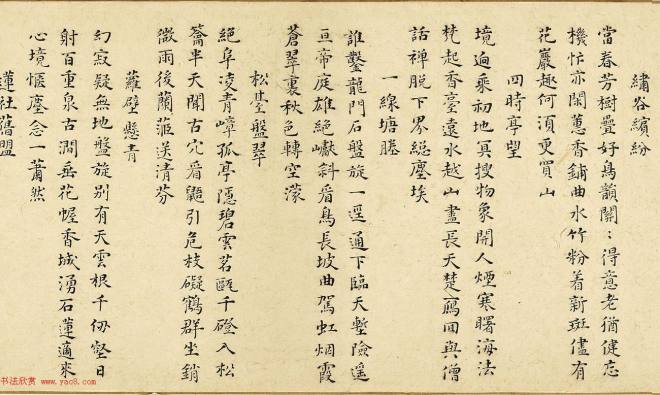 繡谷繽紛
當春芳樹疊好鳥韻關〻得意老猶健忘
機忙亦閑蕙香鋪曲水竹粉着新斑儘有
花巖趣何須更買山
四時亭望
境迥乘初地冥搜物象開人煙寒曙海法
梵起香臺遠水越山盡長天楚鴈回與僧
話禪脫下界總塵埃
一線塘塍
誰鑿龍門石盤旋一逕通下臨天塹險遥
亘帝庭雄絕巘斜看鳥長坡曲駕虹烟霞
蒼翠裏秋色轉空濛
松臺盤翠
絕阜凌青嶂孤亭隱碧雲茗甌千磴入松
籥半天聞古穴看鼯引危枝礙鶴群坐銷
微雨後蘭茝送清芬
蘿壁懸青
幻寂疑無地盤旋別有天雲根千仞壑日
射百重泉古澗無花幄香城湧石蓮適來
心境愜塵念一蕭然
蓮社舊盟
书法欣赏
www.yac8.com